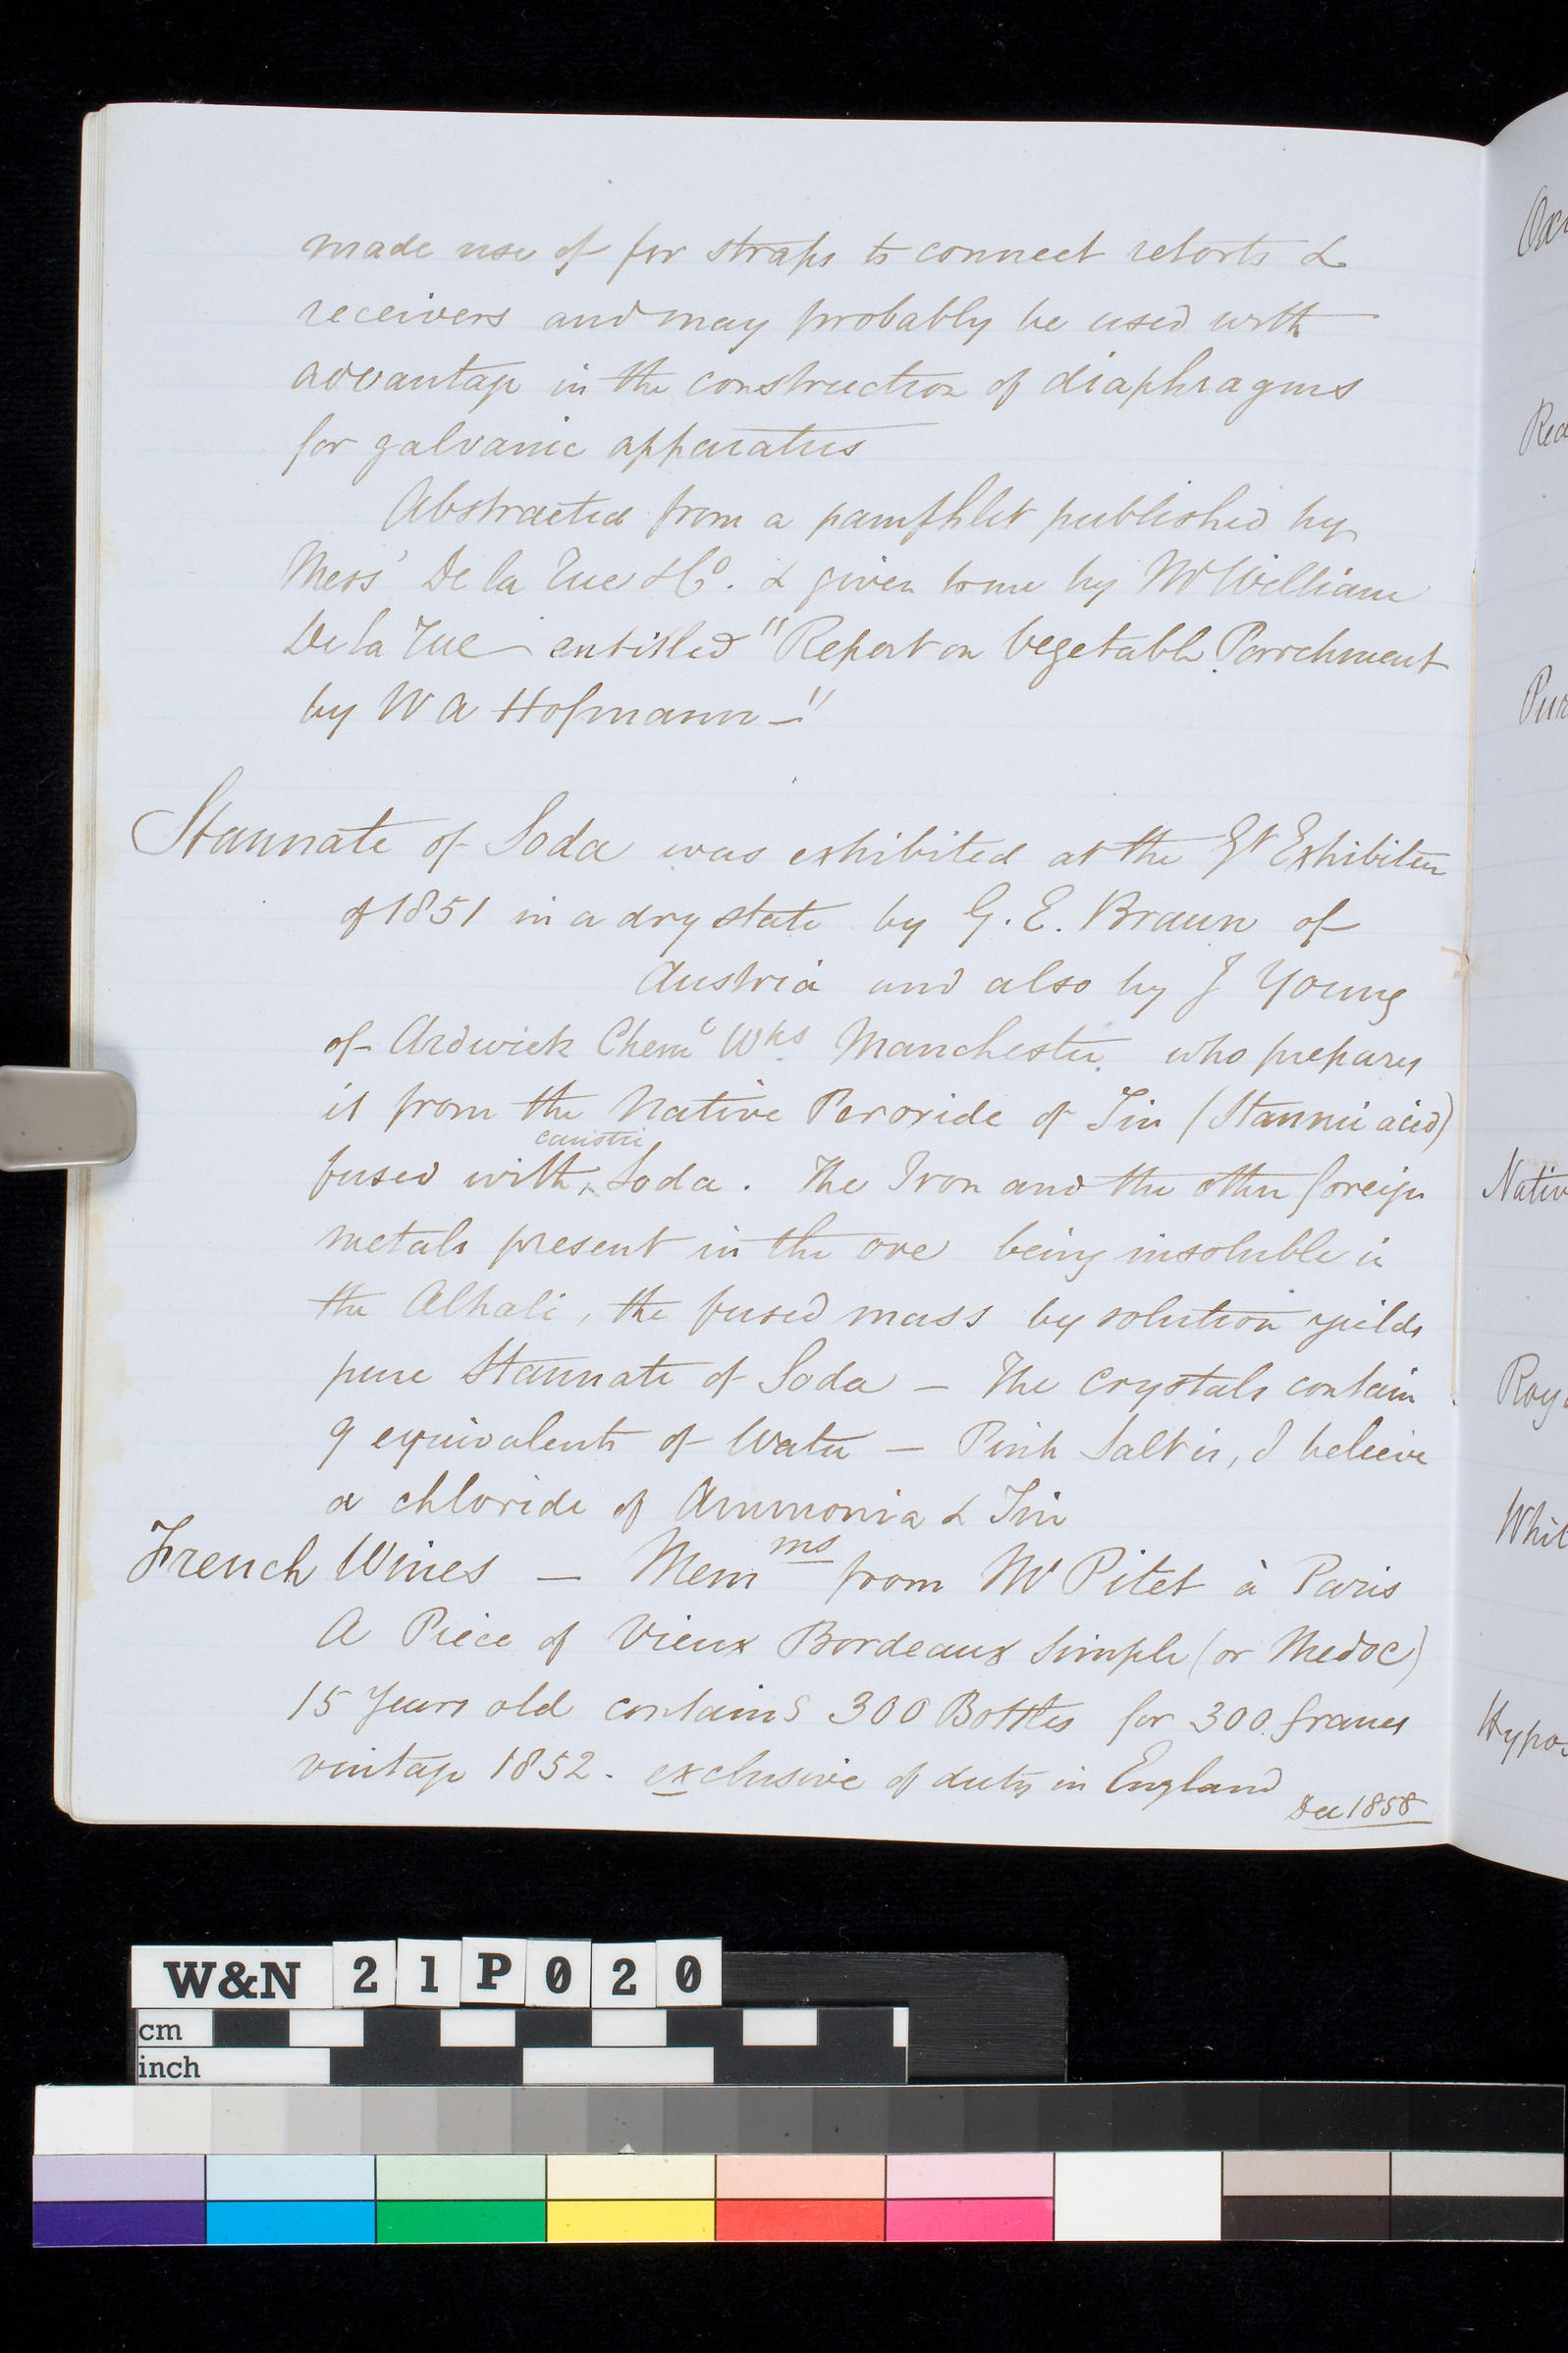 made use of for straps to connect retorts &
receivers and may probably be used with
advantage in the construction of diaphragms
for galvanic apparatus
Abstracted from a pamphlet published by
Mess^s De la Rue & C^o. & given to me by M^r William
De la Rue entitled "Report on Vegetable Parchment
by W A Hofmann—"
Stannate of Soda was exhibited at the G^t Exhibition
of 1851 in a dry state by G. E. Braun of
Austria and also by J Young
of Ardwick Chem^l W^ks Manchester who prepares
it from the Native Peroxide of Tin (Stannic acid)
caustic
fused with ^ Soda. The Iron and the other foreign
metals present in the ore being insoluble in
the Alkali, the fused mass by solution yields
pure Stannate of Soda — The crystals contain
9 equivalents of Water — Pink Salt is, I believe
a chloride of Ammonia & Tin
French Wines — Mem^ms from M^r Pitet à Paris
A Piece of Vieux Bordeaux simple (or Medoc)
15 Years old contains 300 Bottles for 300 francs
vintage 1852. exclusive of duty in England
Dec 1858
Oxi
Red
Pur
Nativ
Roya
Whit
Hypos
W&N 21P020
cm
inch